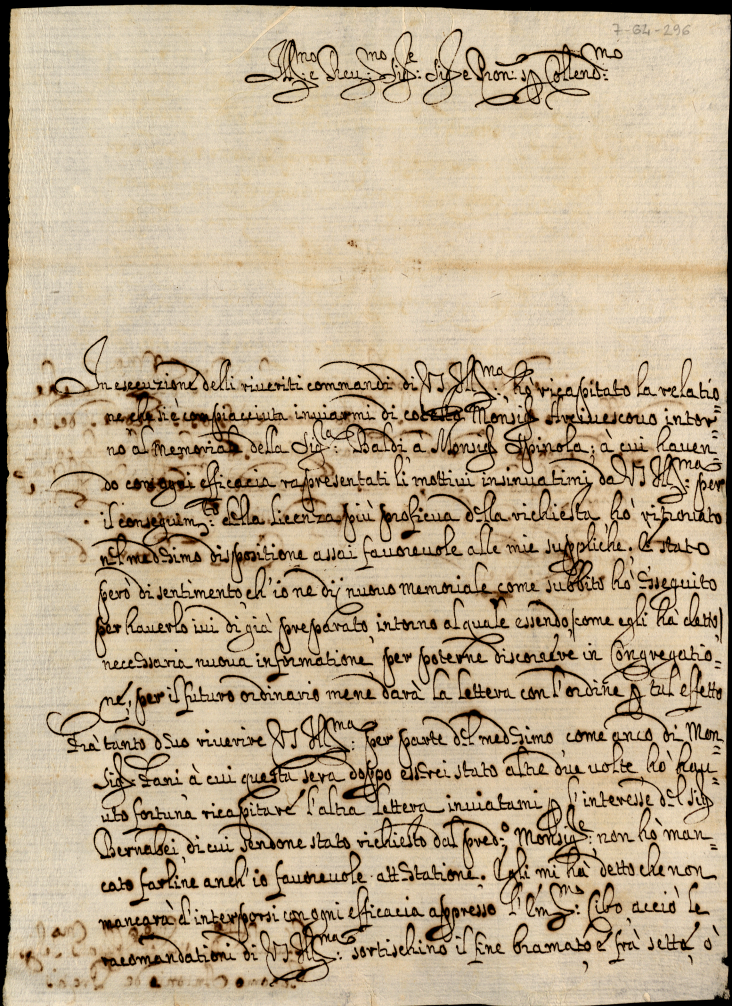 7-64-296
Ill.mo e Reu.mo Sig.re Sig.re e Pron. Collend.mo
In esecuzione delli riueriti commandi di VS Ill.ma: hò ricapitato la relatio=
ne che si è compiacciuta inuiarmi di cotesto Monsig. Arciuescouo intor=
no al memoriale della Sig.ra Baldi a Monsig. Spinola; à cui hauen=
do con ogni efficacia rapresentati li mottiui insinuatimi da VS Ill.ma: per
il conseguim.to della licenza più proficua della richiesta hò ritrouato
nel medesimo dispositione assai fauoreuole alle mie suppliche. È stato
però di sentimento ch'io ne dij nuouo memoriale come subbito hò esseguito
per hauerlo iui di già preparato, intorno al quale essendo, (come egli hà detto)
necessaria nuoua informatione per poterne discorrere in Congregatio=
ne, per il futuro ordinario me ne darà la lettera con l'ordine p tal effetto
Frà tanto deuo riuerire VS Ill.ma: per parte del medesimo come anco di Mon=
sig. Fani à cui questa sera doppo esserei stato altre due uolte hò hau=
uto fortuna ricapitare l'altra lettera inuiatami p l'interesse del sig.
Bernabei di cui sendone stato richiesto dal pred.o Monsig.re: non hò man=
cato farline anch'io fauoreuole attestatione. Egli mi hà detto che non
mancarà d'interporsi con ogni efficacia appresso l'Em.mo: Cibo acciò le
racomandationi di VS Ill.ma: sortischino il fine bramato, e frà sette, ò